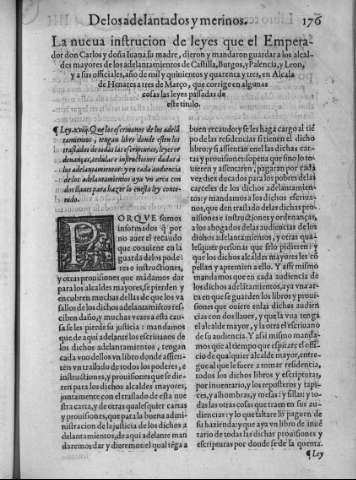 De los adelantados y merinos. 176
La nueua instrucion de leyes que el Empera-
dor don Carlos y doña Iuana su madre, dieron y mandaron guardar a los alcal-
des mayores de los adelantamientos de Castilla, Burgos, y Palencia, y Leon,
y a sus officiales, año de mil y quinientos y quarenta y tres, en Alcala
de Henares a tres de Março, que corrige en algunas
cosas las leyes passadas de
este titulo.
¶ Ley. xviij. Q los escriuanos de los adelã
tamientos, tengan libro donde esten los
traslados de todas las escripturas, leyes or
denanças, y
de los adelantamientos: y en cada audiencia
de los adelantamientos aya vn arca con
dos llaues para hazer lo en esta ley conte-
nido.
PORQVE somos
informados q̃ por
no auer el recaudo
que conuiene en la
guarda de los pode-
res o instruciones,
y otras prouisiones que mãdamos dar
para los alcaldes mayores, se pierden y
encubren muchas dellas de que los va
sallos de los dichos adelantamiẽtos res-
ciben daño, y muchas vezes a esta cau-
sa se les pierde su justicia: mandamos
que de aqui adelante los escriuanos de
los dichos adelantamientos, tengan
cada vno dellos vn libro donde assien-
tẽ vn traslado de todos los poderes, e
instruciones, y prouisiones que se die-
ren para los dichos alcaldes mayores,
juntamente con el traslado de esta nue
stra carta, y de otras qualesquier cartas
y prouisiones, que para la buena admi-
nistracion de la justicia de los dichos a-
delantamientos, de aqui adelante man
daremos dar y dieremos el qual tẽga a
buen recaudo y se les haga cargo al tiẽ
po de las residencias si tienen el dicho
libro: y si assientan en el las dichas car-
tas y prouisiones so pena que sino lo tu-
uieren y assentaren, pagaran por cada
vez diez ducados para los pobres de las
carceles de los dichos adelantamien-
tos, y mandamos a los dichos escriua-
nos, que den traslado de las dichas pro-
uisiones e instruciones y ordenanças,
a los abogados de las audiencias de los
dichos adelantamientos, y otras qua-
lesquier personas que lo pidieren: y
que los dichos alcaldes mayores les cõ
pellan y apremien a ello. Y assi mismo
mandamos que en cada audiencia de
los dichos adelantamientos, aya vna ar
ca en que se guarden los libros y proui-
siones que ouiere en las dichas audien
cias con dos llaues, y que la vna tenga
el alcalde mayor, y la otra el escriuano
de su audiencia. Y assi mismo manda-
mos que al tiempo que espirare el offi-
cio de qualquier alcalde mayor, entre-
gue al que fuere a tomar residencia,
todos los dichos libros y escripturas,
por inuentario, y los reposteros y tapi-
ces, y alhombras, y mesas: y sillas: y to-
das las otras cosas que traen en sus au-
diencias: y lo que faltare lo paguen de
su hazienda: y que aya vn libro de inuẽ
tario de todas las dichas prouisiones y
escripturas por donde se de la quenta.
¶ Ley